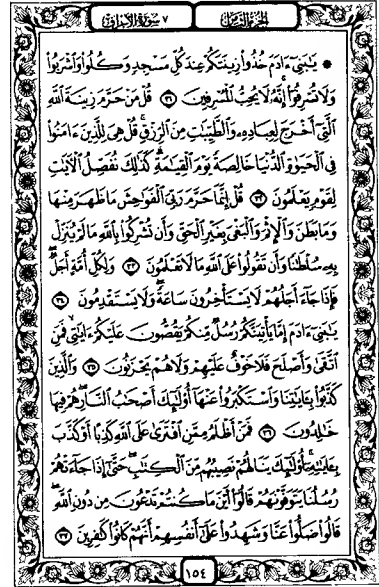 الجزء الثامن ٧ سورة الأعراف
۞ يَٰبَنِىٓ ءَادَمَ خُذُوا۟ زِينَتَكُمْ عِندَ كُلِّ مَسْجِدٍ وَكُلُوا۟ وَٱشْرَبُوا۟
وَلَا تُسْرِفُوٓا۟ ۚ إِنَّهُۥ لَا يُحِبُّ ٱلْمُسْرِفِينَ ٣١ قُلْ مَنْ حَرَّمَ زِينَةَ ٱللَّهِ
ٱلَّتِىٓ أَخْرَجَ لِعِبَادِهِۦ وَٱلطَّيِّبَٰتِ مِنَ ٱلرِّزْقِ ۚ قُلْ هِىَ لِلَّذِينَ ءَامَنُوا۟
فِى ٱلْحَيَوٰةِ ٱلدُّنْيَا خَالِصَةً يَوْمَ ٱلْقِيَٰمَةِ ۗ كَذَٰلِكَ نُفَصِّلُ ٱلْءَايَٰتِ
لِقَوْمٍ يَعْلَمُونَ ٣٢ قُلْ إِنَّمَا حَرَّمَ رَبِّىَ ٱلْفَوَٰحِشَ مَا ظَهَرَ مِنْهَا
وَمَا بَطَنَ وَٱلْإِثْمَ وَٱلْبَغْىَ بِغَيْرِ ٱلْحَقِّ وَأَن تُشْرِكُوا۟ بِٱللَّهِ مَا لَمْ يُنَزِّلْ
بِهِۦ سُلْطَٰنًا وَأَن تَقُولُوا۟ عَلَى ٱللَّهِ مَا لَا تَعْلَمُونَ ٣٣ وَلِكُلِّ أُمَّةٍ أَجَلٌ ۖ
فَإِذَا جَآءَ أَجَلُهُمْ لَا يَسْتَأْخِرُونَ سَاعَةً ۖ وَلَا يَسْتَقْدِمُونَ ٣٤
يَٰبَنِىٓ ءَادَمَ إِمَّا يَأْتِيَنَّكُمْ رُسُلٌ مِّنكُمْ يَقُصُّونَ عَلَيْكُمْ ءَايَٰتِى ۙ فَمَنِ
ٱتَّقَىٰ وَأَصْلَحَ فَلَا خَوْفٌ عَلَيْهِمْ وَلَا هُمْ يَحْزَنُونَ ٣٥ وَٱلَّذِينَ
كَذَّبُوا۟ بِـَٔايَٰتِنَا وَٱسْتَكْبَرُوا۟ عَنْهَآ أُو۟لَٰٓئِكَ أَصْحَٰبُ ٱلنَّارِ ۖ هُمْ فِيهَا
خَٰلِدُونَ ٣٦ فَمَنْ أَظْلَمُ مِمَّنِ ٱفْتَرَىٰ عَلَى ٱللَّهِ كَذِبًا أَوْ كَذَّبَ
بِـَٔايَٰتِهِۦٓ ۚ أُو۟لَٰٓئِكَ يَنَالُهُمْ نَصِيبُهُم مِّنَ ٱلْكِتَٰبِ ۖ حَتَّىٰٓ إِذَا جَآءَتْهُمْ
رُسُلُنَا يَتَوَفَّوْنَهُمْ قَالُوٓا۟ أَيْنَ مَا كُنتُمْ تَدْعُونَ مِن دُونِ ٱللَّهِ ۖ
قَالُوا۟ ضَلُّوا۟ عَنَّا وَشَهِدُوا۟ عَلَىٰٓ أَنفُسِهِمْ أَنَّهُمْ كَانُوا۟ كَٰفِرِينَ ٣٧
١٥٤